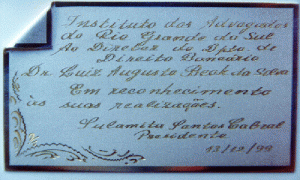 Instituto dos Advogados
do Rio Grande do Sul
Ao Diretor do Dpto. de
Direito Bancário
Dr. Luiz Augusto Beck da Silva
Em reconhecimento
às suas realizações.
Sulamita Santos Cabral
Presidente
13/12/99